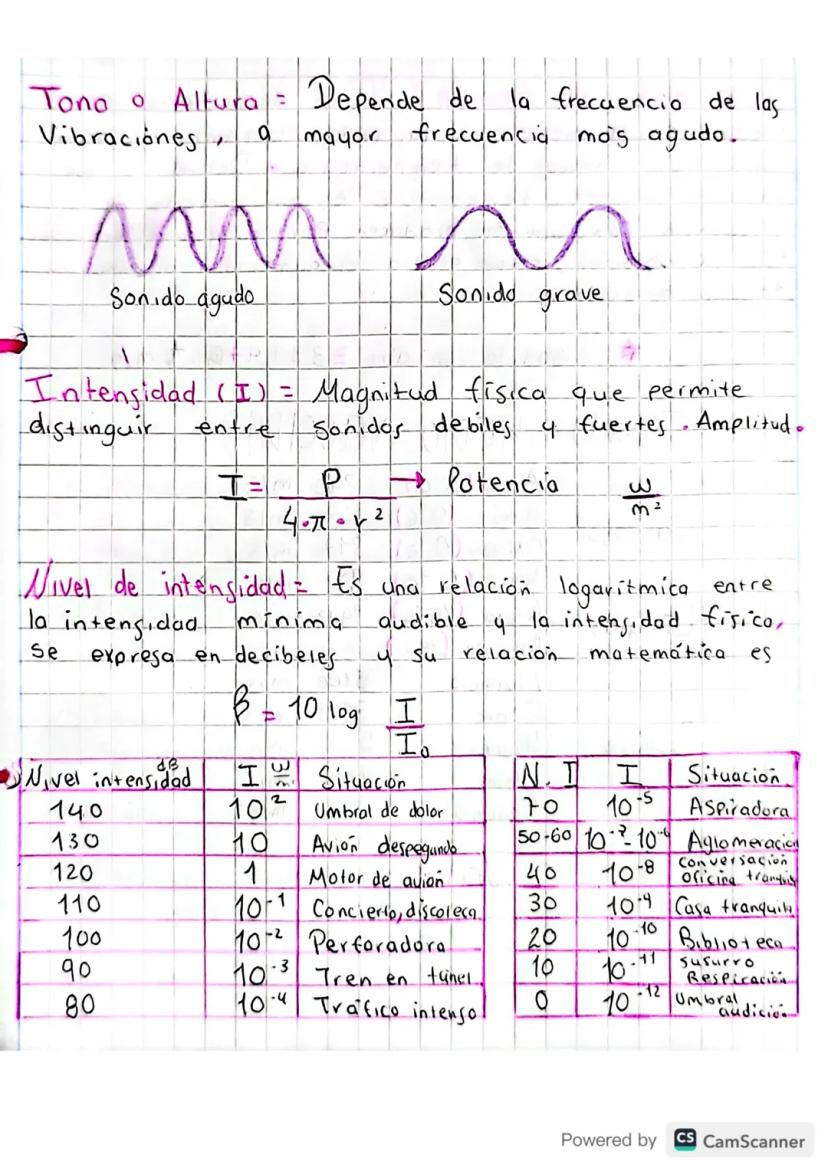 Tono o Altura = Depende de la frecuencia de las
Vibraciónes, a mayor frecuencia más agudo.
Sonido agudo
Sonido grave
Intensidad (I) = Magnitud física que permite
distinguir entre sonidos debiles y fuertes. Amplitud.
I = P / 4·π·r² → Potencia w/m²
Nivel de intensidad = Es una relación logarítmica entre
la intensidad mínima audible y la intensidad física,
se expresa en decibeles y su relación matemática es
β = 10 log I / I₀
Nivel de intensidad | I w/m² | Situación
140 | 10² | Umbral de dolor
130 | 10 | Avión despegando
120 | 1 | Motor de avión
110 | 10⁻¹ | Concierto, discoteca
100 | 10⁻² | Perforadora
90 | 10⁻³ | Tren en túnel
80 | 10⁻⁴ | Tráfico intenso
N. I | I | Situación
70 | 10⁻⁵ | Aspiradora
50-60 | 10⁻⁷-10⁻⁶ | Aglomeración
40 | 10⁻⁸ | conversación
oficina tranquila
30 | 10⁻⁹ | Casa tranquila
20 | 10⁻¹⁰ | Biblioteca
10 | 10⁻¹¹ | susurro
Respiración
0 | 10⁻¹² | Umbral
audición
Powered by CS CamScanner